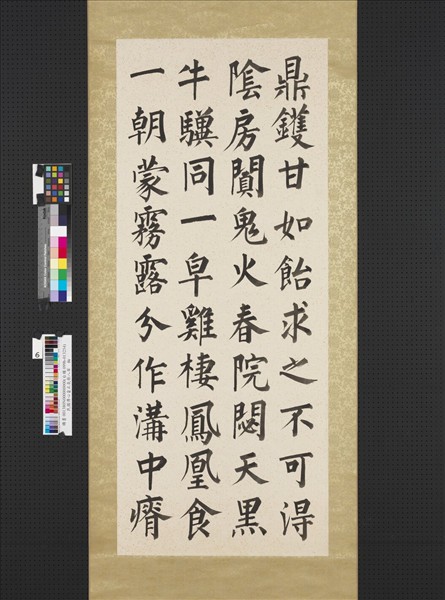 鼎鑊甘如飴求之不可得
陰房闐鬼火春院閟天黑
牛驥同一皁雞棲鳳凰食
一朝蒙霧露分作溝中瘠